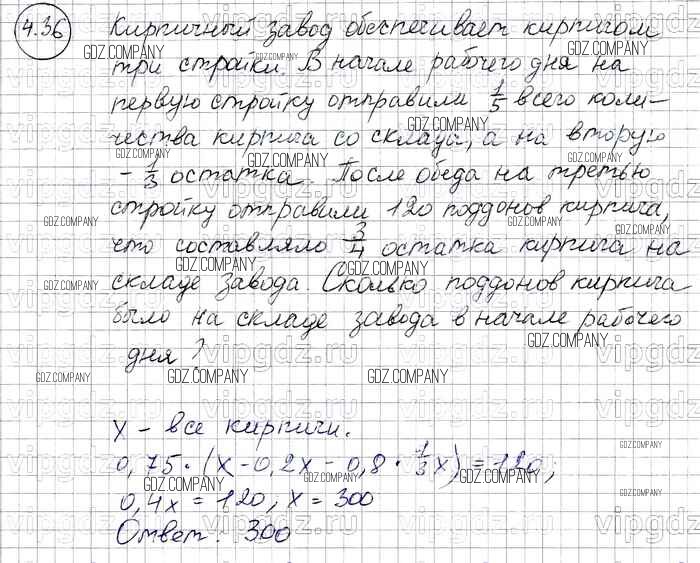 4.36 Кирпичный завод обеспечивает кирпичом
три стройки. В начале рабочего дня на
первую стройку отправили 1/5 всего коли-
чества кирпича со склада, а на вторую
- 1/3 остатка. После обеда на третью
стройку отправили 120 поддонов кирпича,
что составляло 3/4 остатка кирпича на
складе завода. Сколько поддонов кирпича
было на складе завода в начале рабочего
дня?
x - все кирпичи.
0,75 · (x - 0,2x - 0,8 · 1/3 x) = 120;
0,4x = 120; x = 300
Ответ: 300